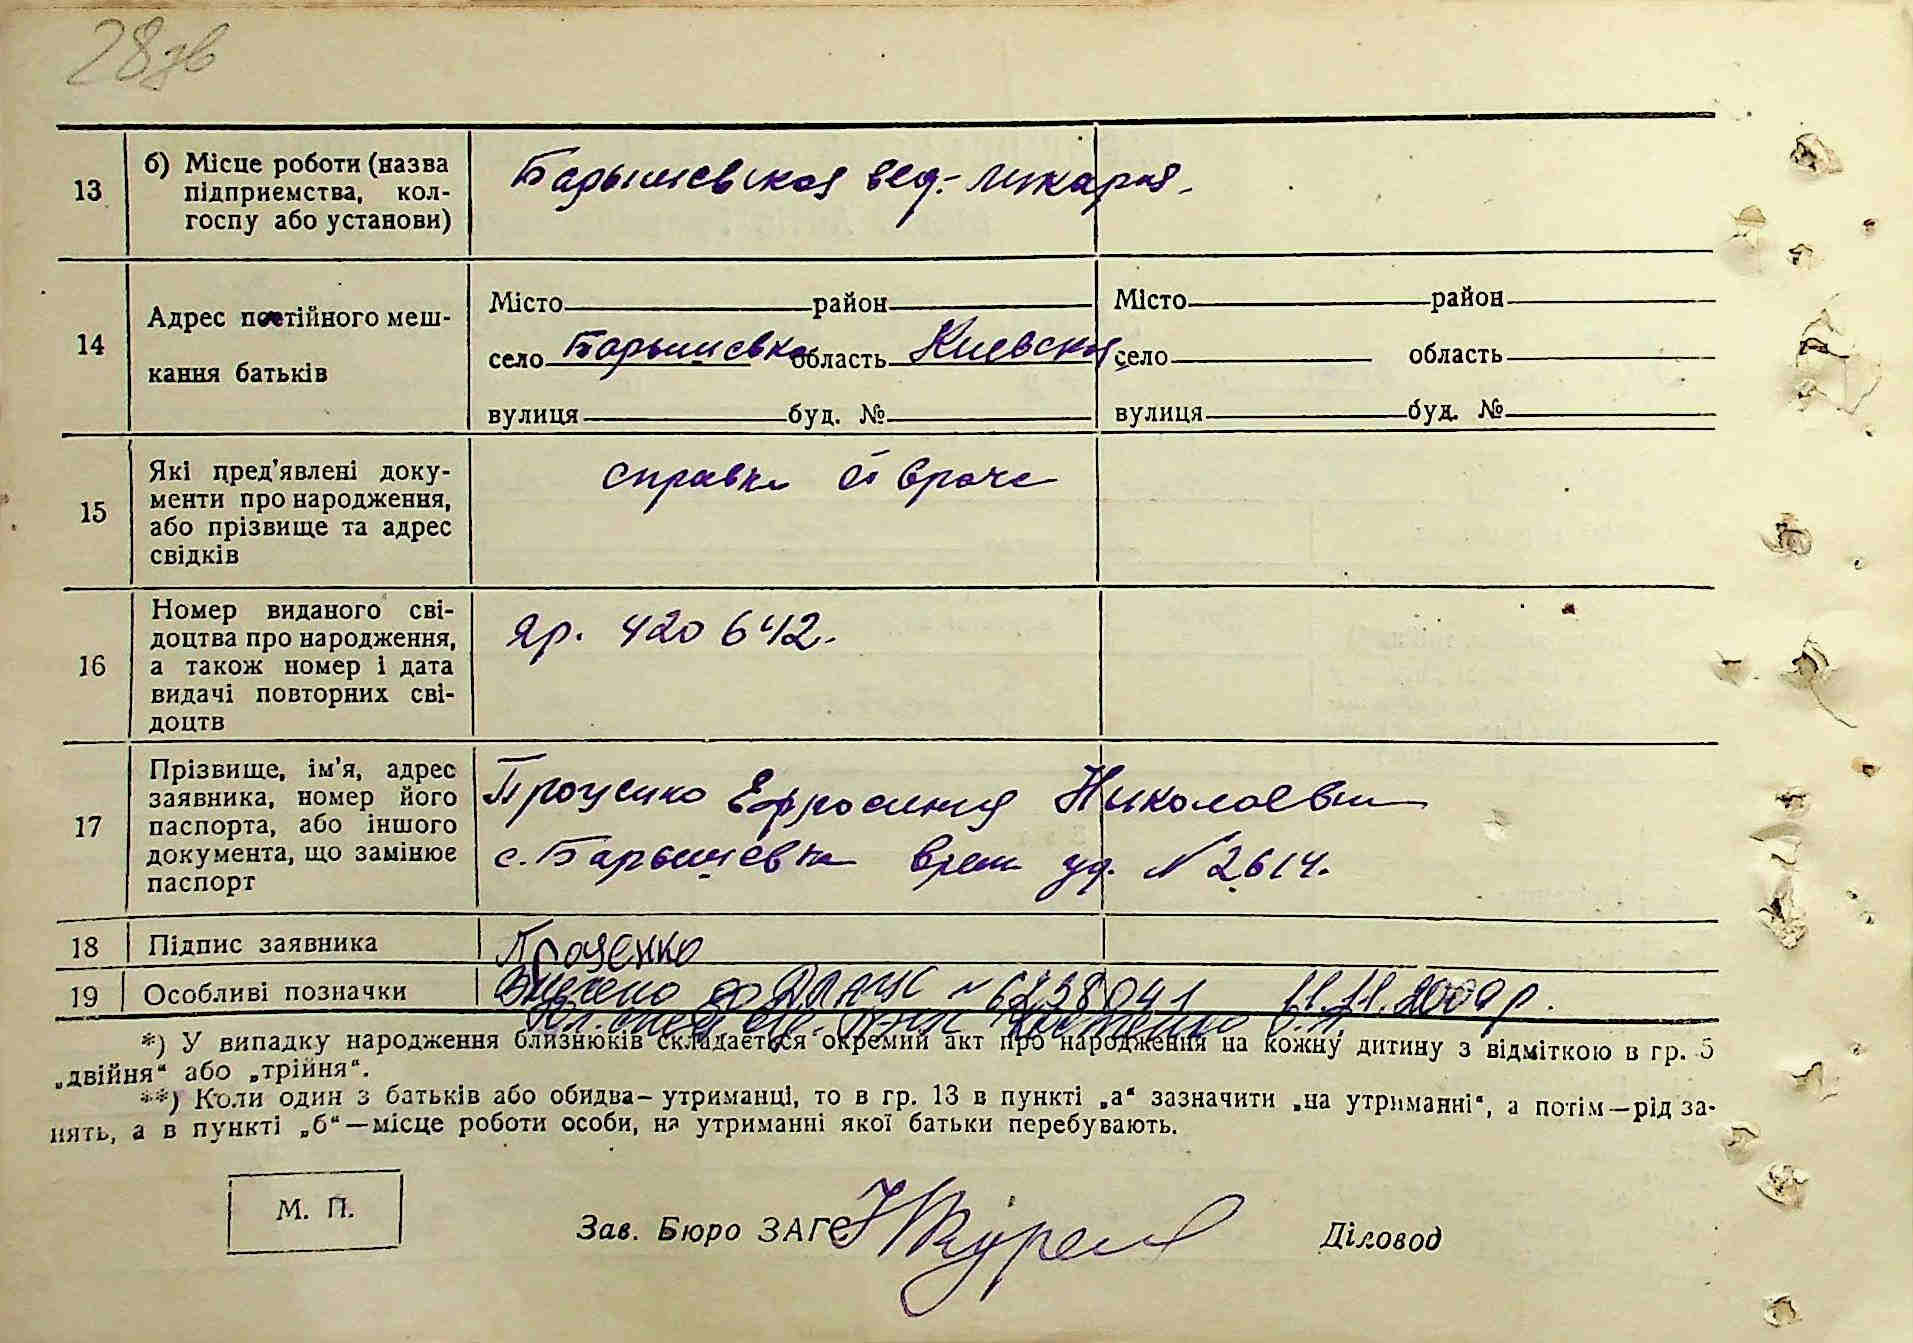 28зв
13
б) Місце роботи (назва
підприємства, кол-
госпу або установи)
Барышевская вед. ликарня.
14
Адрес постійного меш-
кання батьків
Місто район
село Барышевка область Киевская
вулиця буд. №
Місто район
село область
вулиця буд. №
15
Які пред'явлені доку-
менти про народження,
або прізвище та адрес
свідків
справка врача
16
Номер виданого сві-
доцтва про народження,
а також номер і дата
видачі повторних сві-
доцтв
яр. 420642.
17
Прізвище, ім'я, адрес
заявника, номер його
паспорта, або іншого
документа, що замінює
паспорт
Проценко Ефросиния Николаевна
с. Барышевка врем уд. №2614.
18
Підпис заявника
Проценко
19
Особливі позначки
Внесено до ДРАЦС 11.11.2009р.
*) У випадку народження близнюків складається окремий акт про народження на кожну дитину з відміткою в гр. 5
„двійня“ або „трійня“.
**) Коли один з батьків або обидва—утриманці, то в гр. 13 в пункті „а“ зазначити „на утриманні“, а потім—рід за-
нять, а в пункті „б“—місце роботи особи, на утриманні якої батьки перебувають.
М. П.
Зав. Бюро ЗАГС
Діловод